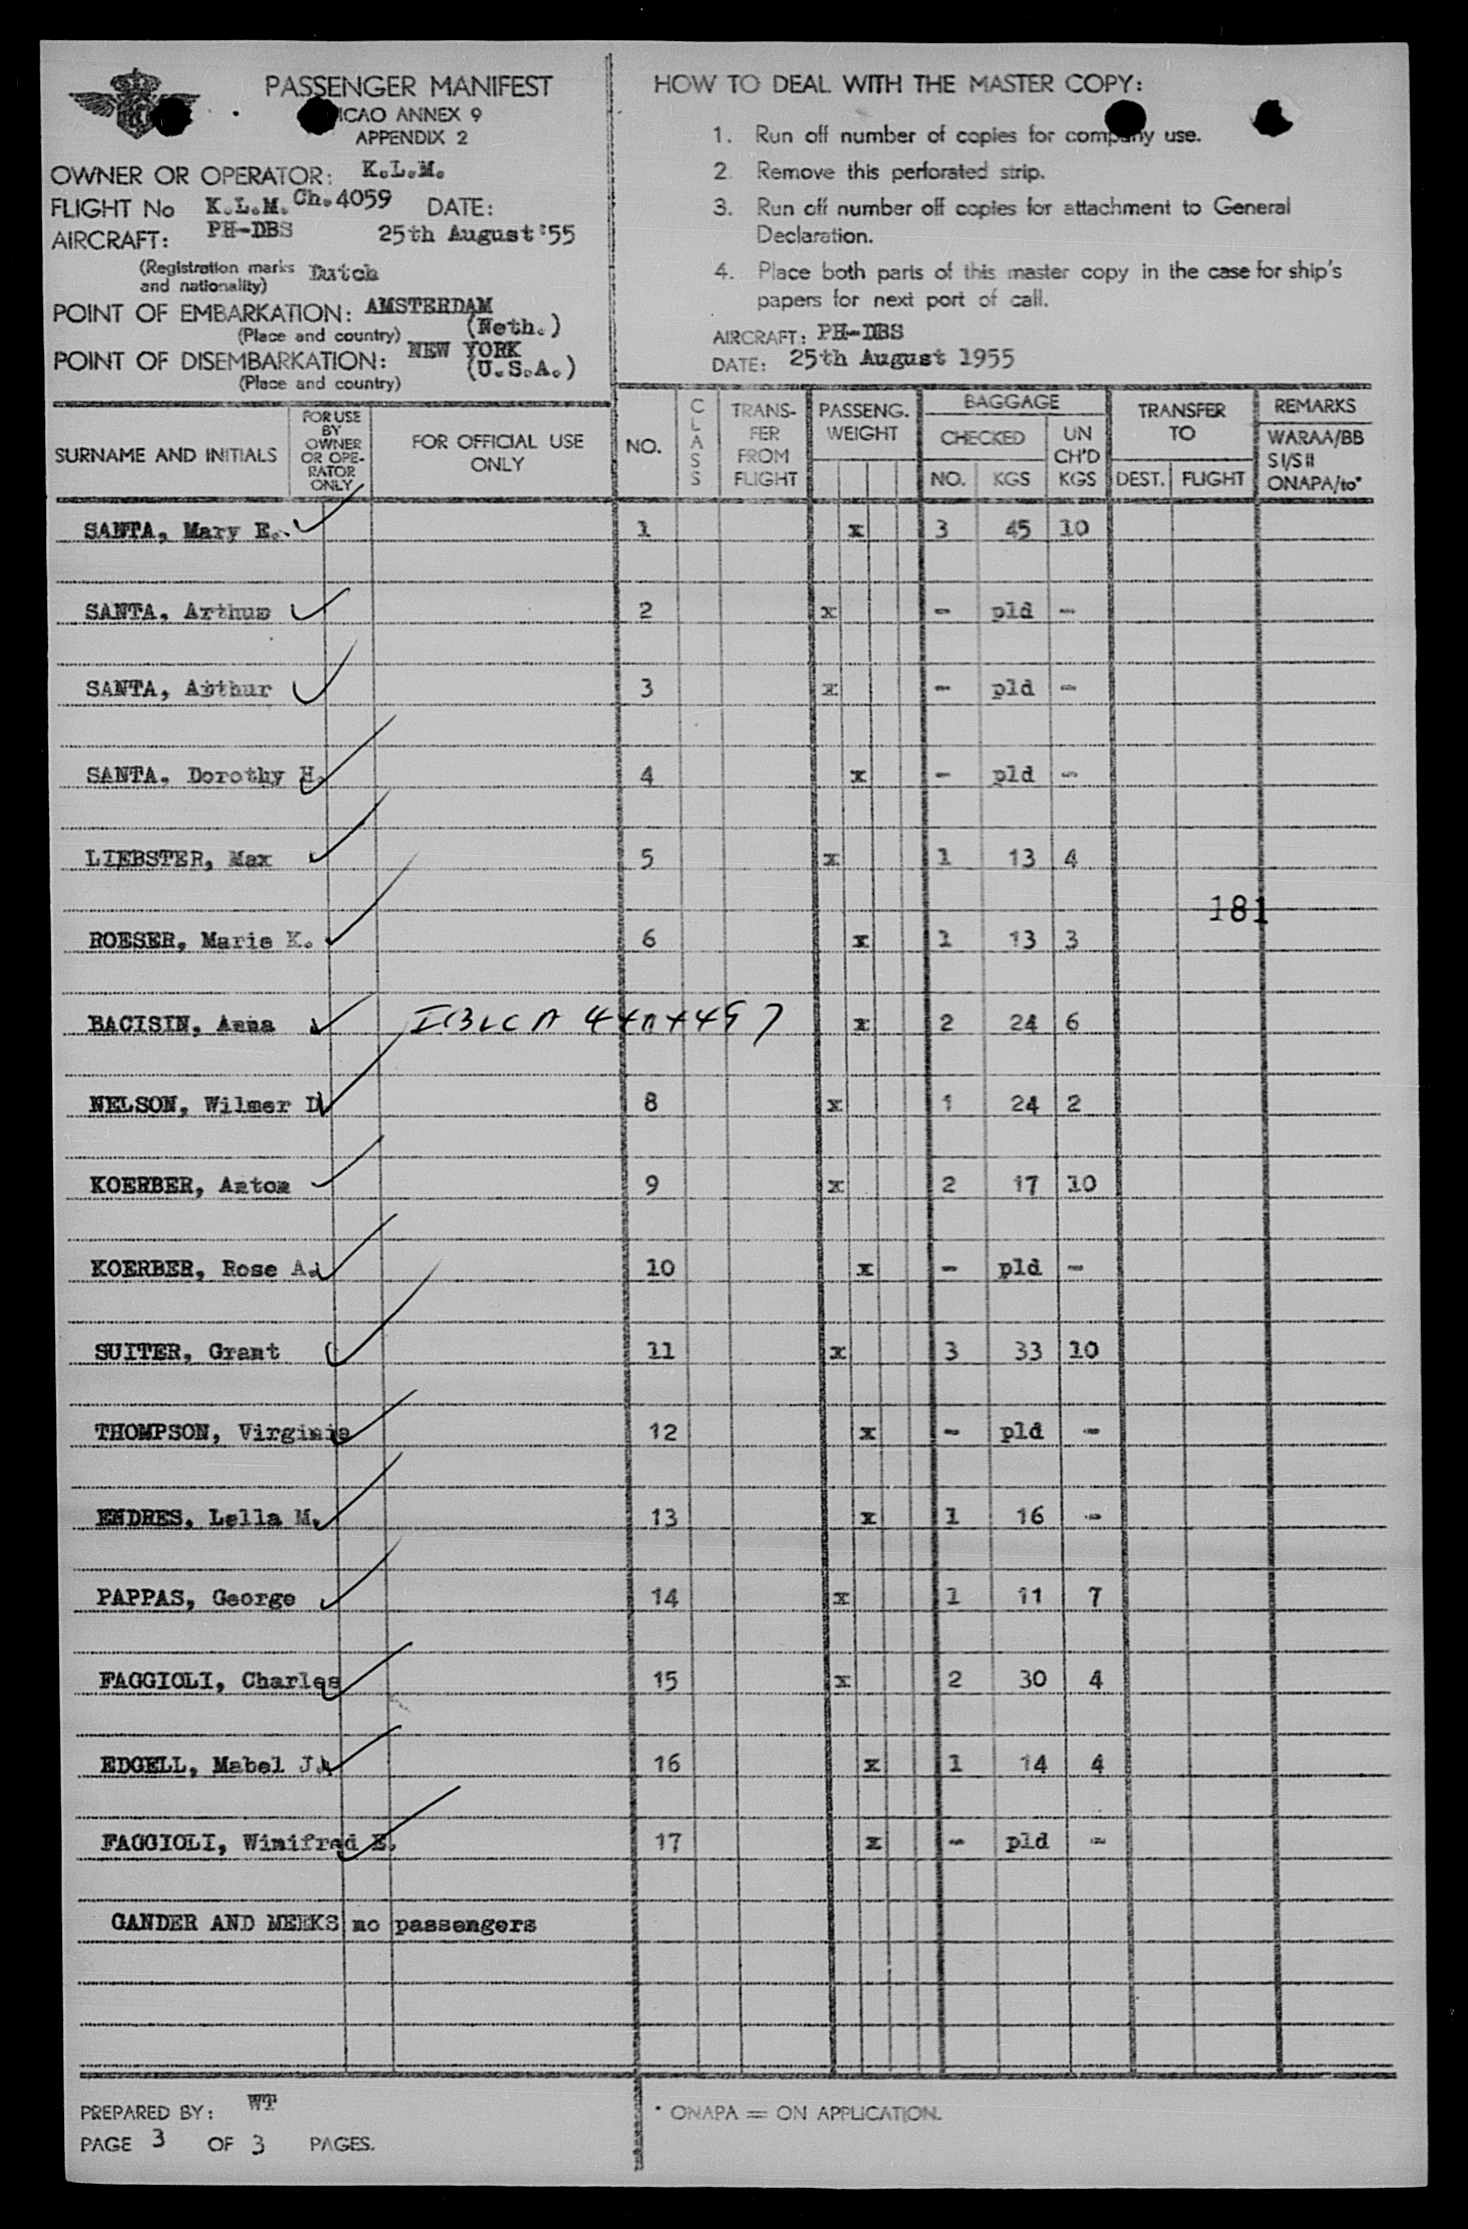 PASSENGER MANIFEST
ICAO ANNEX 9
APPENDIX 2
OWNER OR OPERATOR: K.L.M.
FLIGHT No K.L.M. Ch.4059 DATE:
AIRCRAFT: PH-DBS 25th August '55
(Registration marks and nationality) Dutch
POINT OF EMBARKATION: AMSTERDAM
(Place and country) (Neth.)
POINT OF DISEMBARKATION: NEW YORK
(Place and country) (U.S.A.)
HOW TO DEAL WITH THE MASTER COPY:
1. Run off number of copies for company use.
2. Remove this perforated strip.
3. Run off number off copies for attachment to General
Declaration.
4. Place both parts of this master copy in the case for ship's
papers for next port of call.
AIRCRAFT: PH-DBS
DATE: 25th August 1955
SURNAME AND INITIALS
FOR USE BY OWNER OR OPE-RATOR ONLY
FOR OFFICIAL USE ONLY
NO.
CLASS
TRANS-FER FROM FLIGHT
PASSENG. WEIGHT
BAGGAGE
CHECKED
NO. KGS
UN CH'D KGS
TRANSFER TO
DEST. FLIGHT
REMARKS
WARAA/BB
SI/SII
ONAPA/to*
SANTA, Mary E. 1 x 3 45 10
SANTA, Arthus 2 x - pld -
SANTA, Arthur 3 x - pld -
SANTA. Dorothy H. 4 x - pld -
LIEBSTER, Max 5 x 1 13 4
181
ROESER, Marie K. 6 x 1 13 3
BACISIN, Anna x 2 24 6
NELSON, Wilmer D 8 x 1 24 2
KOERBER, Anton 9 x 2 17 10
KOERBER, Rose A. 10 x - pld -
SUITER, Grant 11 x 3 33 10
THOMPSON, Virginia 12 x - pld -
ENDRES, Lella M. 13 x 1 16 -
PAPPAS, George 14 x 1 11 7
FAGGIOLI, Charles 15 x 2 30 4
EDGELL, Mabel J. 16 x 1 14 4
FAGGIOLI, Winifred E. 17 x - pld -
GANDER AND MEEKS no passengers
PREPARED BY: WT
PAGE 3 OF 3 PAGES.
* ONAPA = ON APPLICATION.